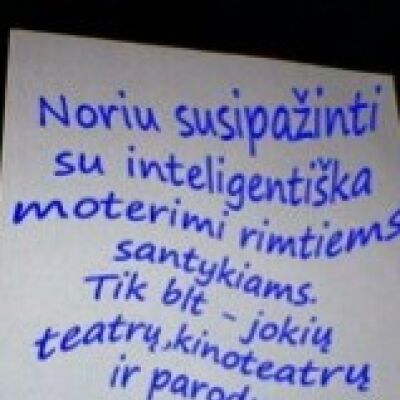 Noriu susipažinti
su inteligentiška
moterimi rimtiems
santykiams.
Tik blt - jokių
teatrų, kinoteatrų
ir parod